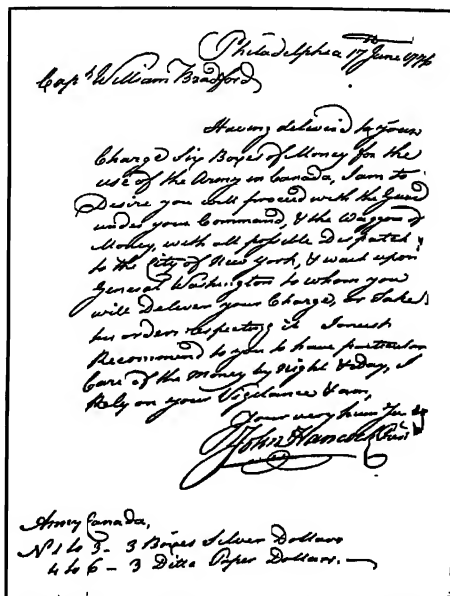 Philadelphia 17th June 1776
Capt. William Bradford,
Having deliver'd to your
Charge Six Boxes of Money for the
use of the Army in Canada, I am to
Desire you will proceed with the Guard
under your Command, & the Waggon of
Money, with all possible Despatch
to the City of New York, & wait upon
General Washington to whom you
will Deliver your Charge, or Take
his orders respecting it I must
Recommend to you to have particular
Care of the money by night & day, I
Rely on your Vigilance & am,
Your very hum
John Hancock Presid
Army Canada,
No 1 to 3 - 3 Boxes Silver Dollars
4 to 6 - 3 Ditto Paper Dollars.